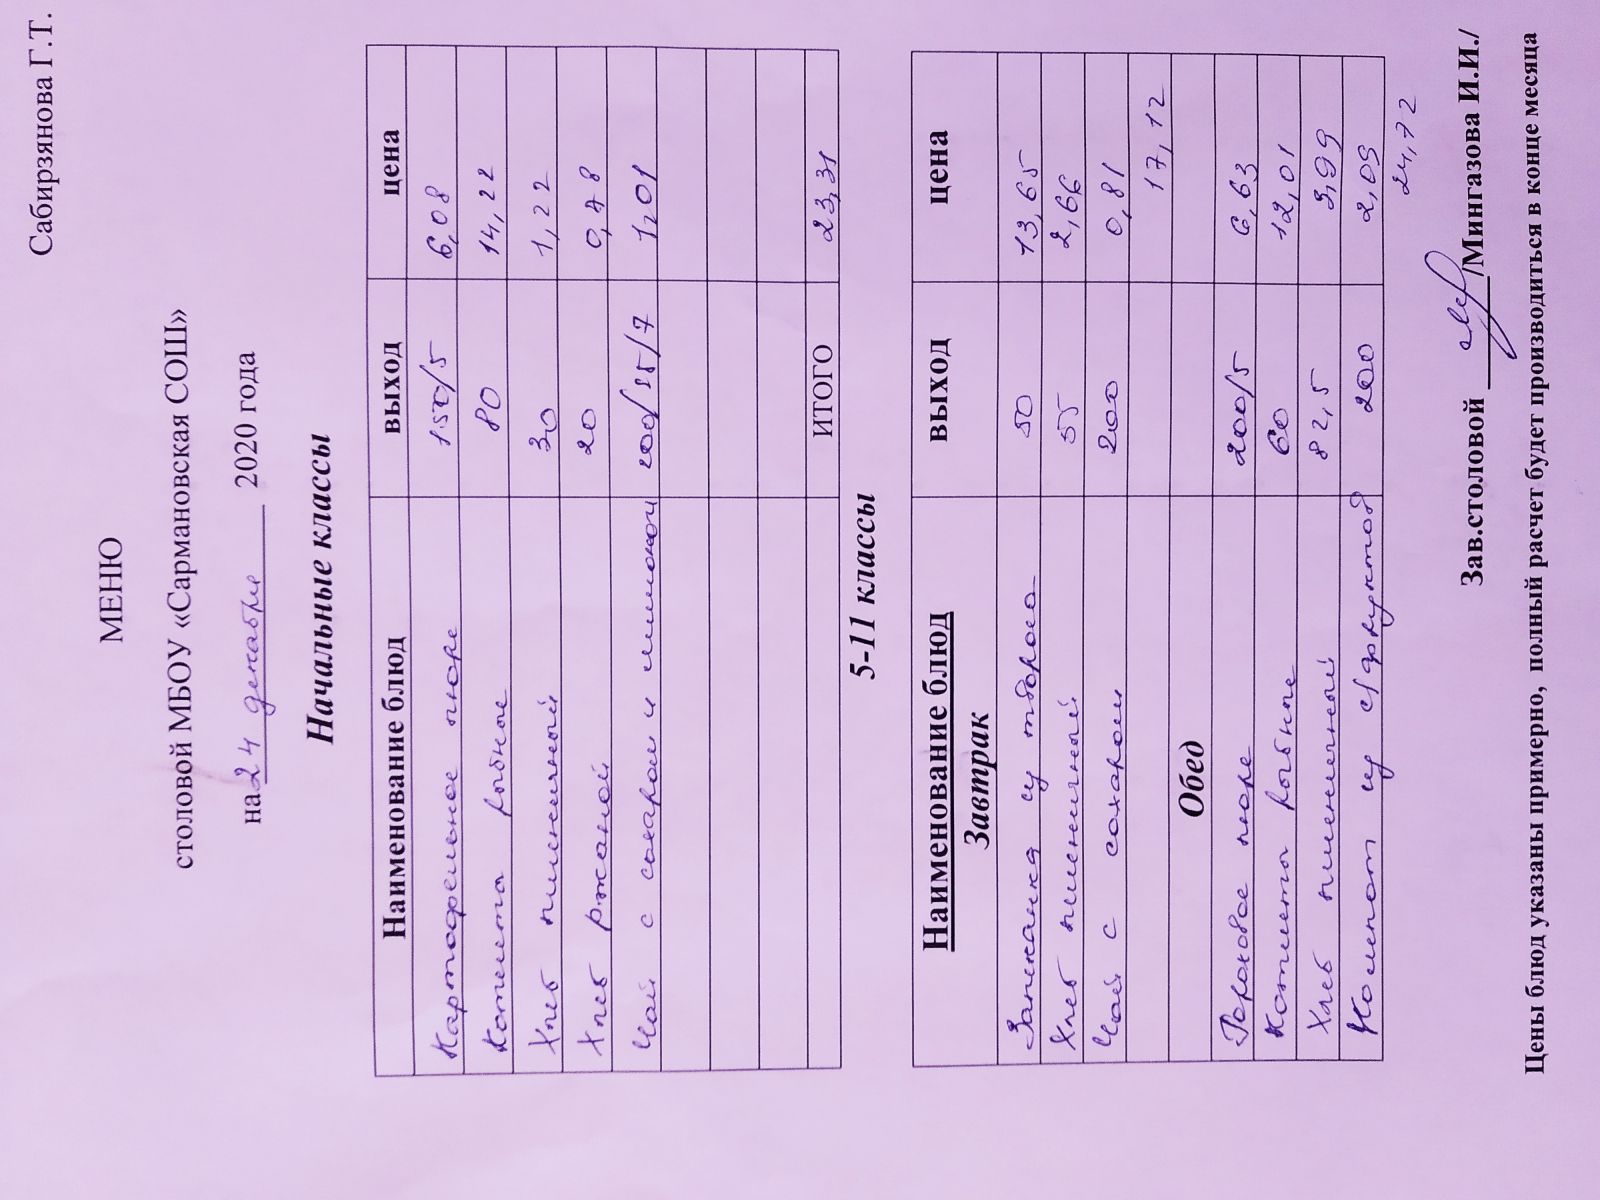 Сабирзянова Г.Т.
МЕНЮ
столовой МБОУ «Сармановская СОШ»
на 24 декабря 2020 года
Начальные классы
Наименование блюд выход цена
Картофельное пюре 150/5 6,08
Котлета рыбные 80 14,22
Хлеб пшеничный 30 1,22
Хлеб ржаной 20 0,78
Чай с сахаром и лимоном 200/15/7 1,01
ИТОГО 23,31
5-11 классы
Наименование блюд выход цена
Завтрак
Запеканка из творога 50 13,65
Хлеб пшеничный 55 2,66
Чай с сахаром 200 0,81
17,12
Обед
Гороховое пюре 200/5 6,63
Котлеты рыбные 60 12,01
Хлеб пшеничный 82,5 3,99
Компот из с/фруктов 200 2,09
24,72
Зав.столовой /Мингазова И.И./
Цены блюд указаны примерно, полный расчет будет производиться в конце месяца